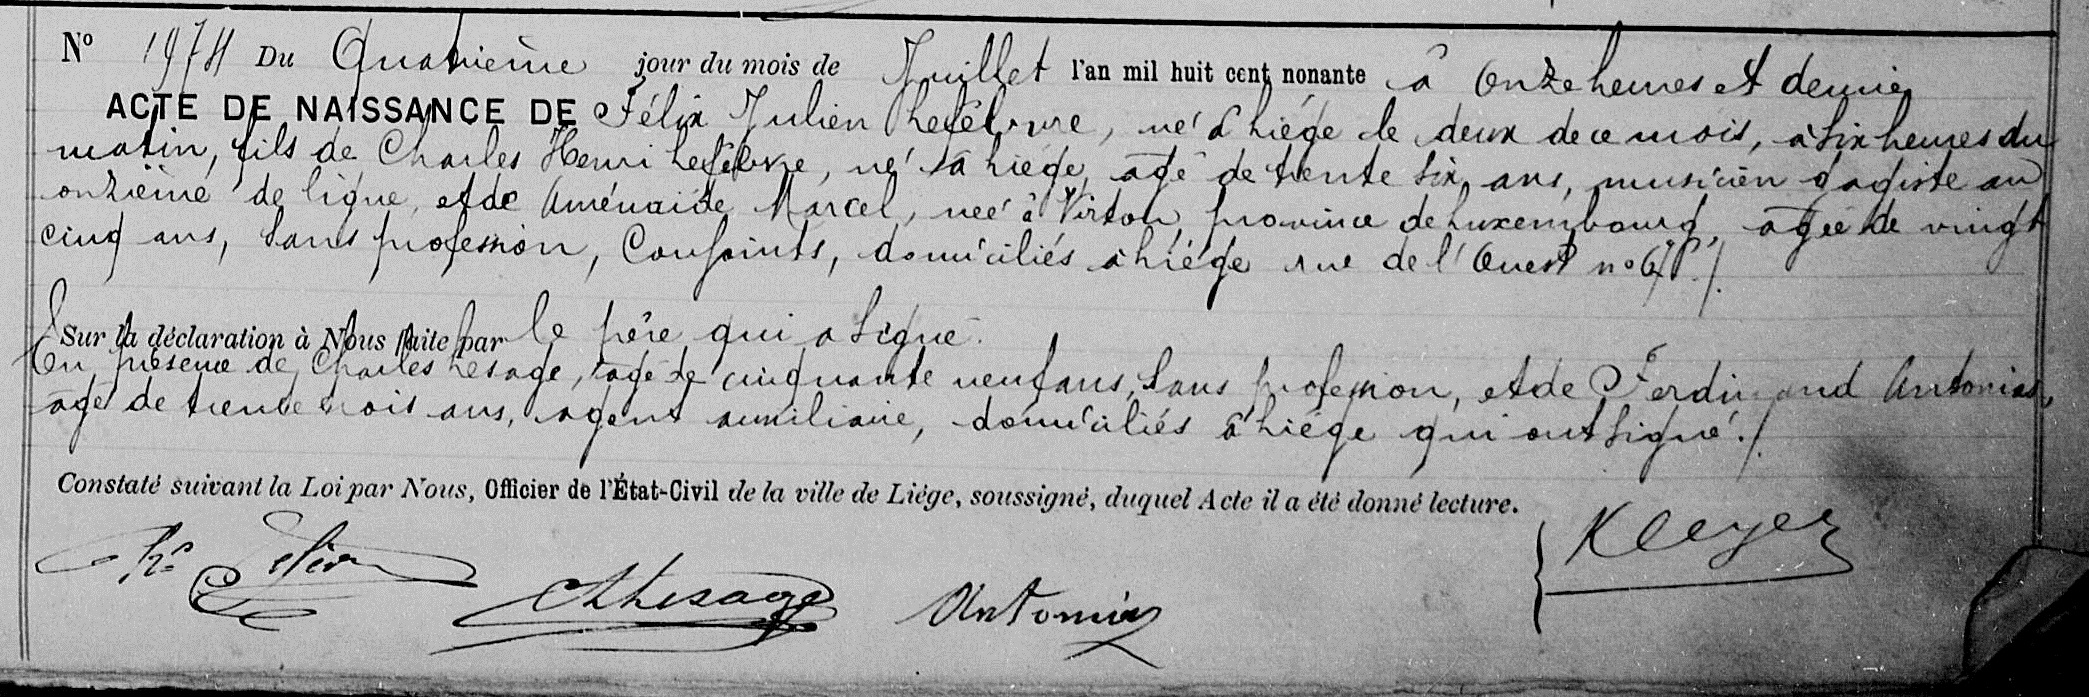 N° 1974 DU Quatrième jour du mois de Juillet l'an mil huit cent nonante à Onze heures et demie
ACTE DE NAISSANCE DE Félix Julien Lefébvre, né à Liége le deux de ce mois, à six heures du
matin, fils de Charles Henri Lefébvre, né à Liége, agé de trente six ans, musicien gagiste au
onzième de ligne, et de Aménaïde Marcel, née à Virton, province de Luxembourg, agée de vingt
cinq ans, sans profession, Conjoints, domiciliés à Liége rue de l'Ouest no
Sur la déclaration à Nous faite par le père qui a signé.
En présence de Charles Lesage, agé de cinquante neuf ans, sans profession, et de Ferdinand Antonias,
agé de trente trois ans, agent auxiliaire, domiciliés à Liége qui ont signé./
Constaté suivant la Loi par Nous, Officier de l'État-Civil de la ville de Liége, soussigné, duquel Acte il a été donné lecture.
Ch Lesage
Kleyer